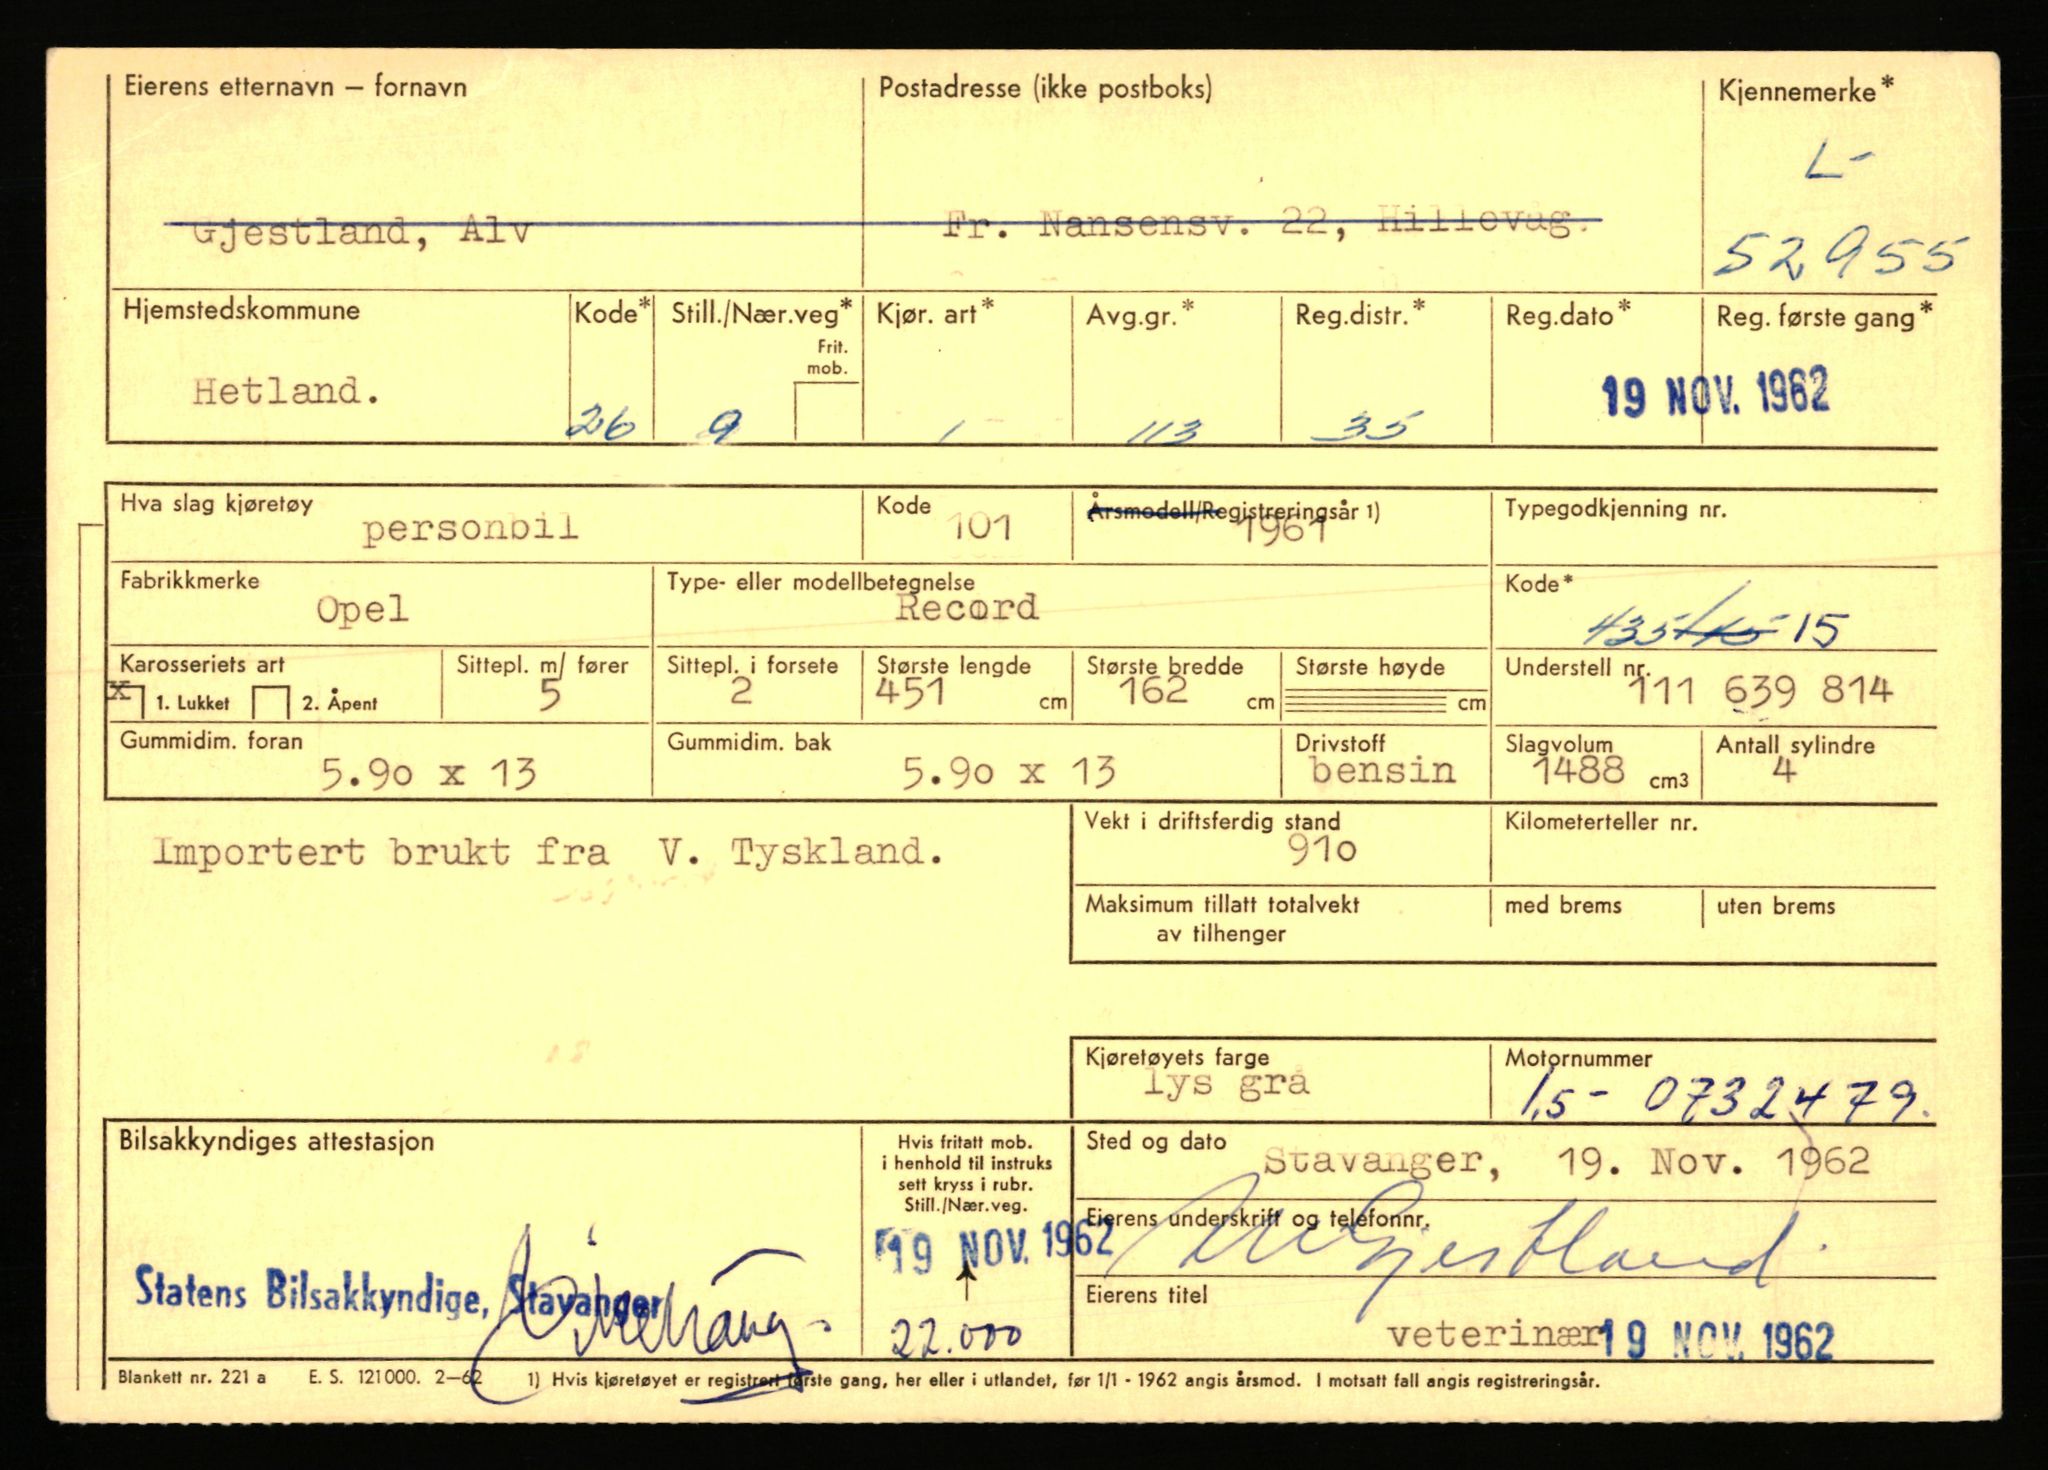 Eierens etternavn – fornavn
Postadresse (ikke postboks)
Kjennemerke*
L-
Gjestland, Alv
Fr. Nansensv. 22, Hillevåg.
52955
Hjemstedskommune
Kode*
Still./Nær.veg*
Kjør. art*
Avg.gr.*
Reg.distr.*
Reg.dato*
Reg. første gang*
Frit.
mob.
Hetland.
26
9
1
113
35
19 NOV. 1962
Hva slag kjøretøy
personbil
Kode
101
Årsmodell/Registreringsår 1)
1961
Typegodkjenning nr.
Fabrikkmerke
Opel
Type- eller modellbetegnelse
Record
Kode*
15
Karosseriets art
x 1. Lukket 2. Åpent
Sittepl. m/ fører
5
Sittepl. i forsete
2
Største lengde
451 cm
Største bredde
162 cm
Største høyde
cm
Understell nr.
111 639 814
Gummidim. foran
5.90 x 13
Gummidim. bak
5.90 x 13
Drivstoff
bensin
Slagvolum
1488 cm3
Antall sylindre
4
Importert brukt fra V. Tyskland.
Vekt i driftsferdig stand
910
Kilometerteller nr.
Maksimum tillatt totalvekt
av tilhenger
med brems
uten brems
Kjøretøyets farge
lys grå
Motornummer
1,5- 0732479.
Bilsakkyndiges attestasjon
Hvis fritatt mob.
i henhold til instruks
sett kryss i rubr.
Still./Nær.veg.
Sted og dato
Stavanger, 19. Nov. 1962
Eierens underskrift og telefonnr.
Gjestland
19 NOV. 1962
Statens Bilsakkyndige, Stavanger
22.000
Eierens titel
veterinær
19 NOV. 1962
Blankett nr. 221 a E. S. 121000. 2–62 1) Hvis kjøretøyet er registrert første gang, her eller i utlandet, før 1/1 - 1962 angis årsmod. I motsatt fall angis registreringsår.